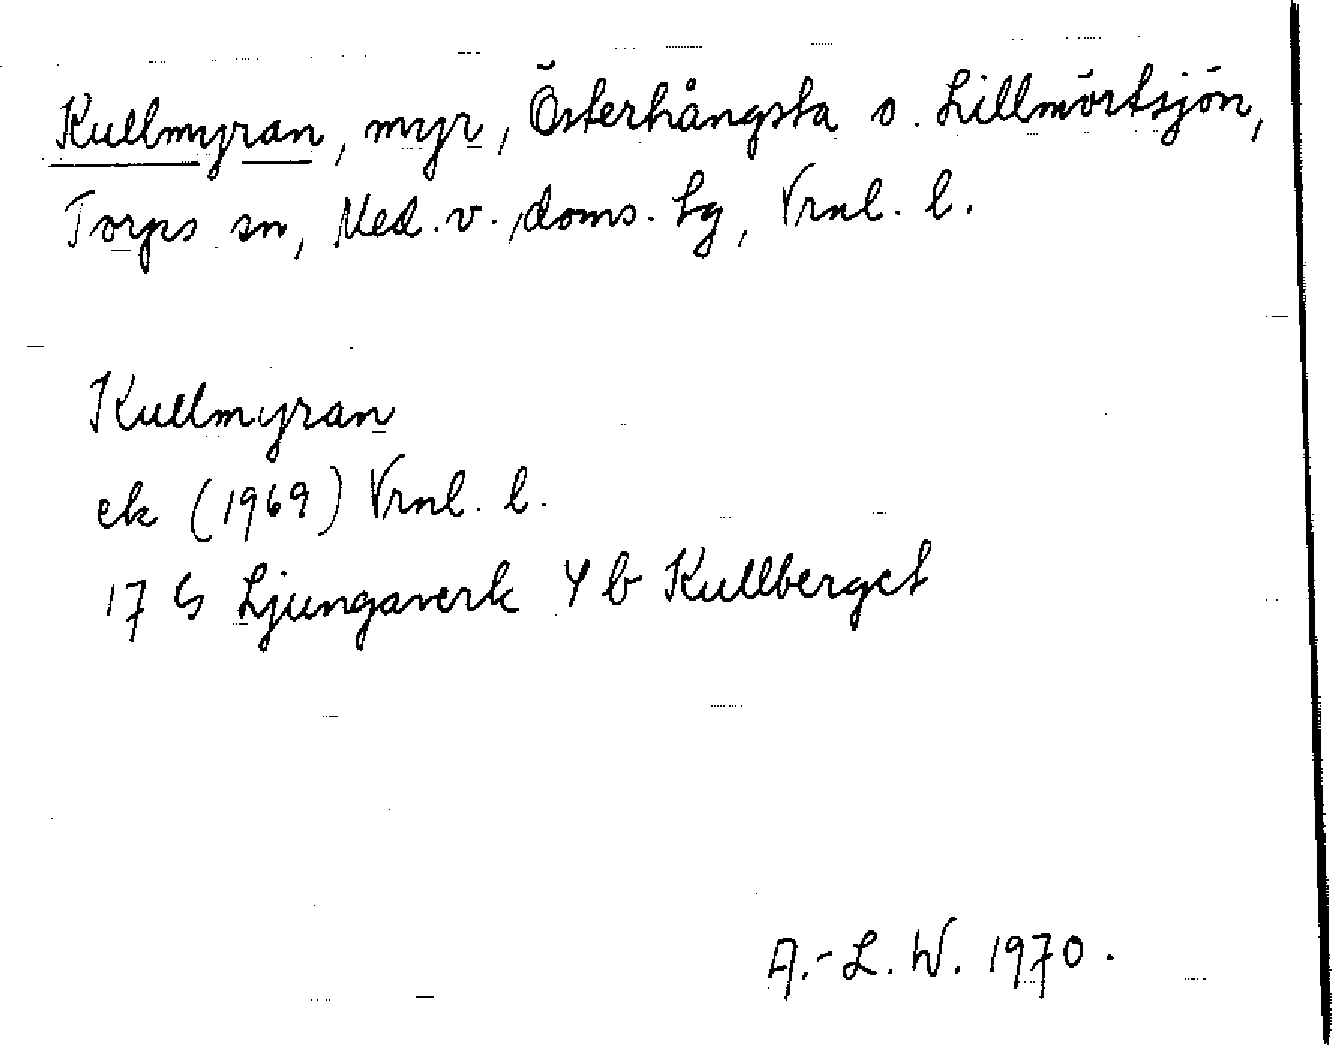 Kullmyran, myr, Österhångsta o. Lillmörtsjön,
Torps sn, Med. v. doms. lg, Vrnl. l.
Kullmyran
ek (1969) Vrnl. l.
17 G Ljungaverk 4 b Kullberget
A.-L. W. 1970.